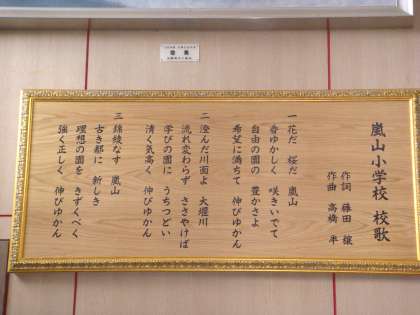 嵐山小学校 校歌
作詞 藤田 穣
作曲 高橋 半
一 花だ 桜だ 嵐山
香ゆかしく 咲きいでて
自由の園の 豊かさよ
希望に満ちて 伸びゆかん
二 澄んだ川面よ 大堰川
流れ変わらず ささやけば
学びの園に うちつどい
清く気高く 伸びゆかん
三 錦綾なす 嵐山
古き都に 新しき
理想の園を きずくべく
強く正しく 伸びゆかん